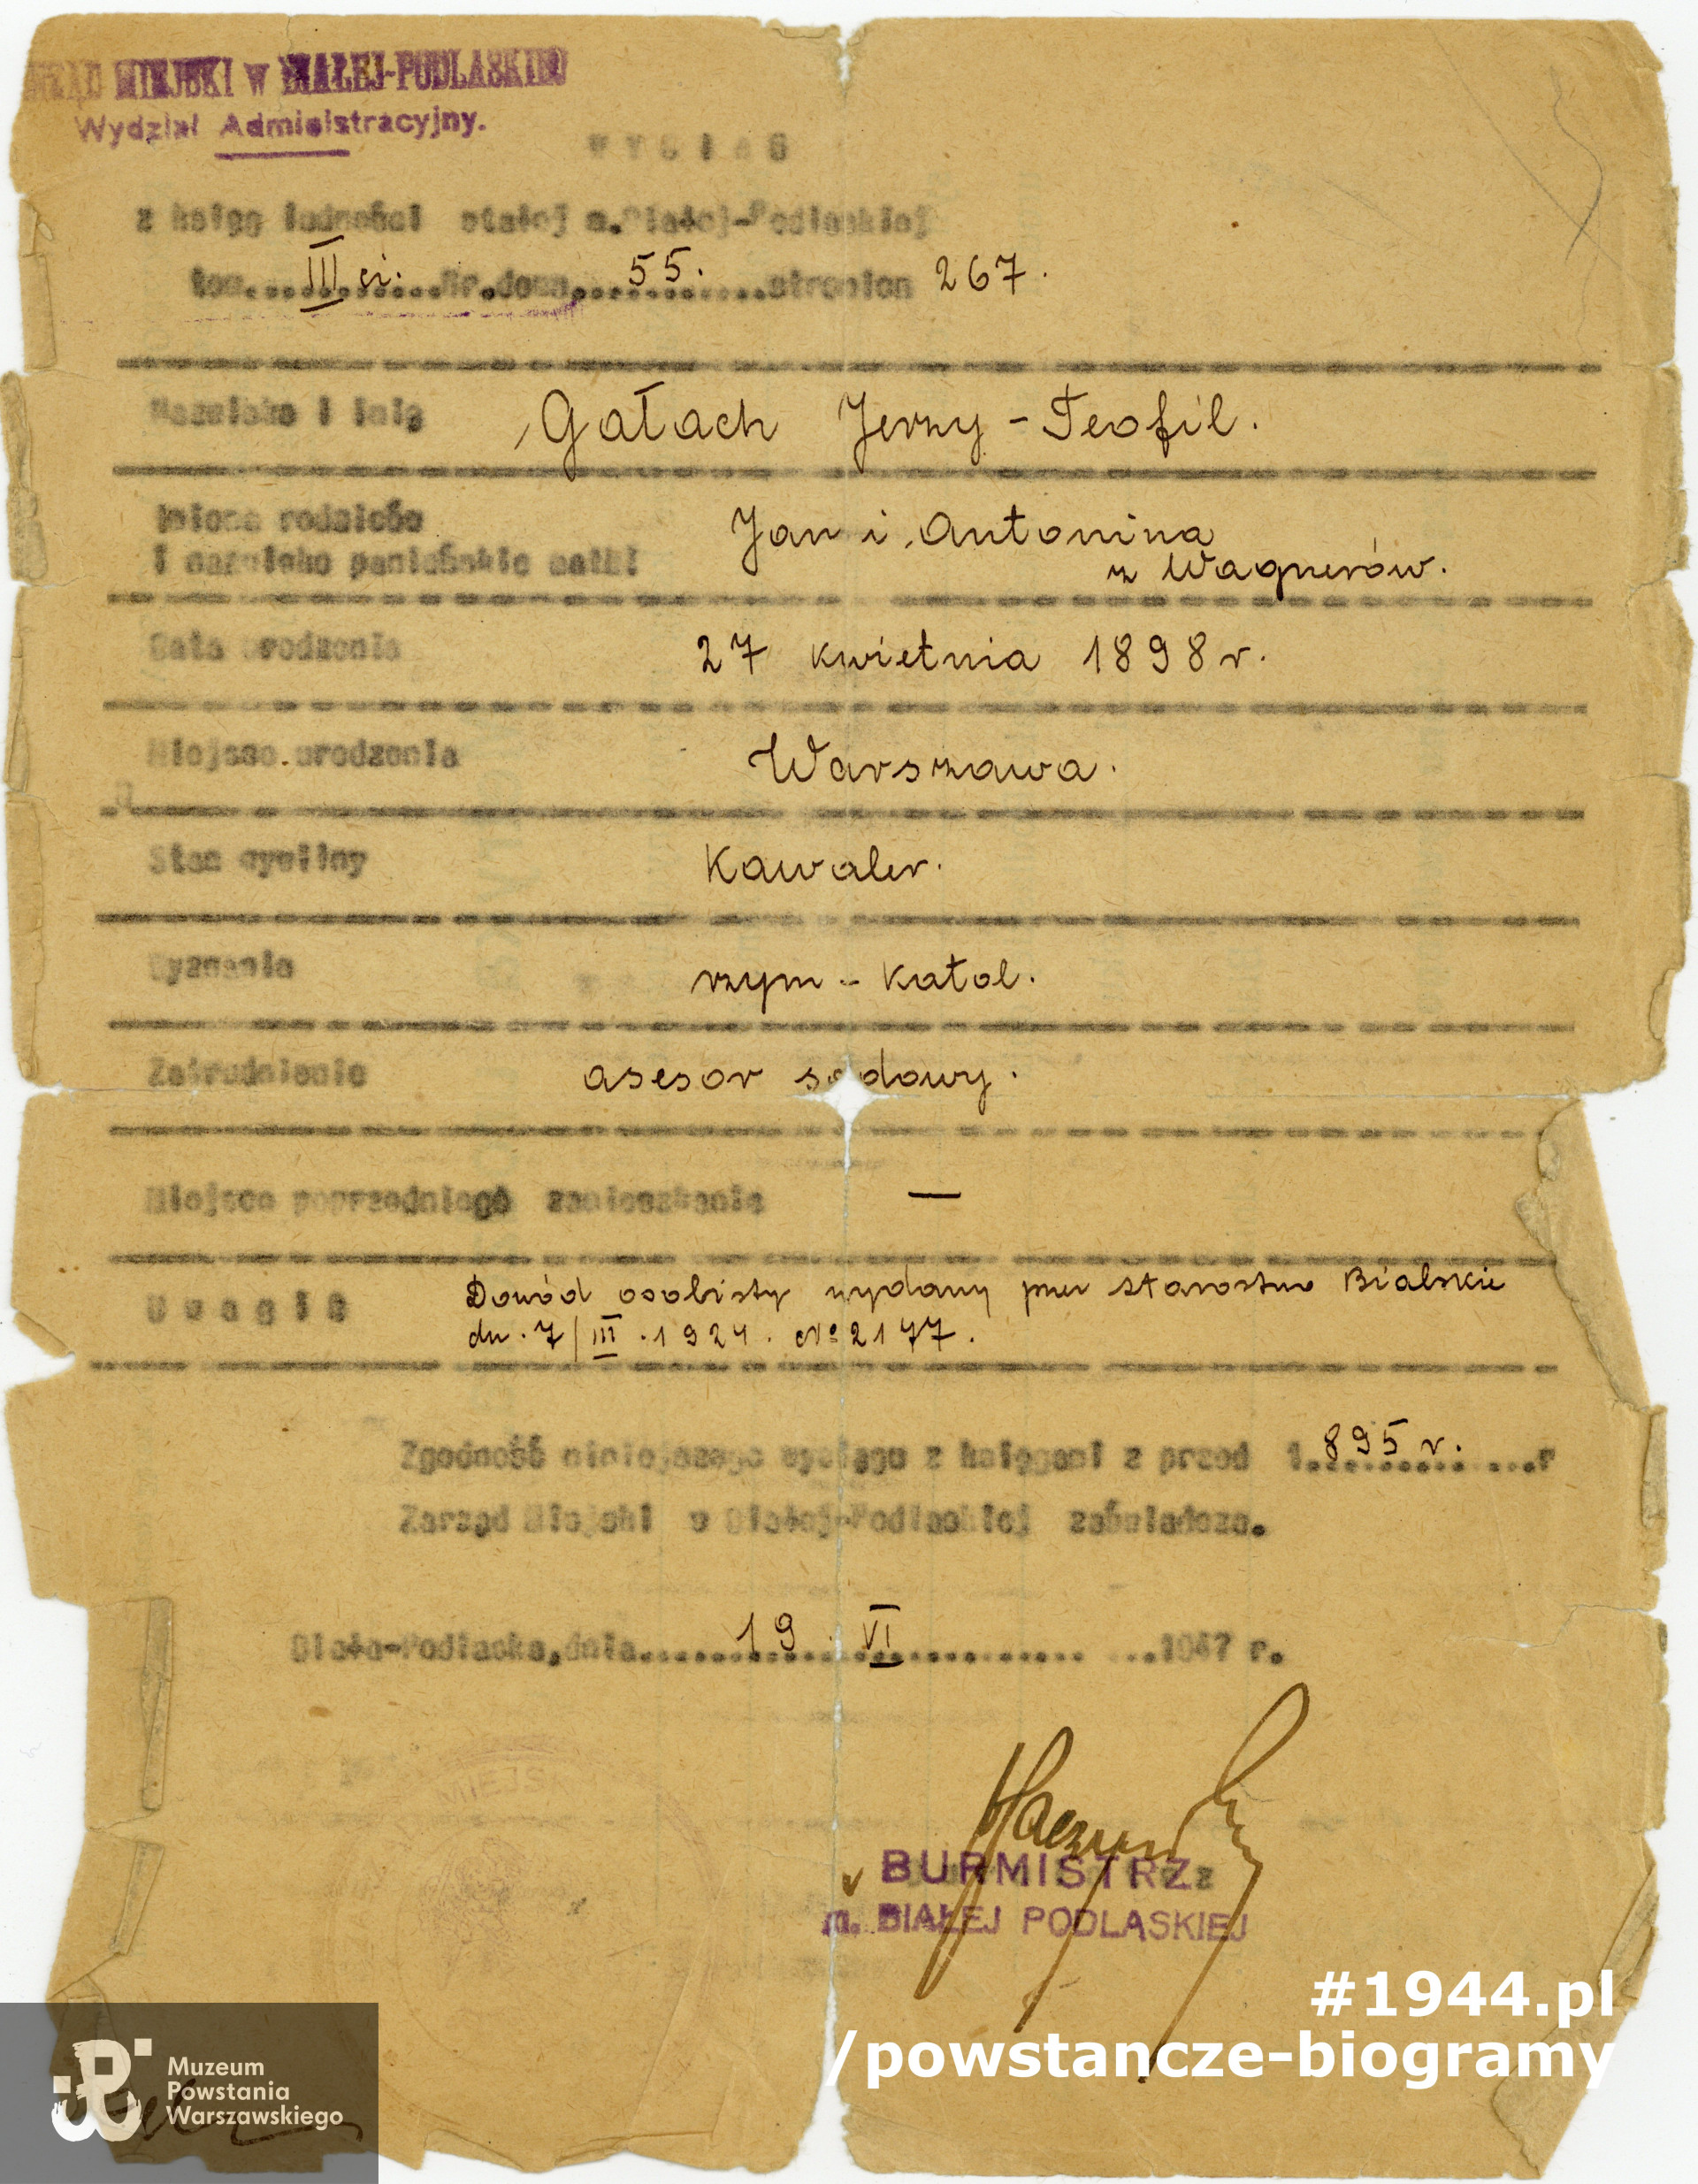 URZĄD MIEJSKI W BIAŁEJ-PODLASKIEJ
Wydział Admiistracyjny.
WYCIĄG
z księg ludności stałej m. Białej-Podlaskiej
tom III ci. Nr. domu 55. stronica 267.
Nazwisko i imię Gałach Jerzy-Teofil.
Imiona rodziców Jan i Antonina
i nazwisko panieńskie matki z Wagnerów.
Data urodzenia 27 kwietnia 1898 r.
Miejsce urodzenia Warszawa.
Stan cywilny Kawaler.
Wyznanie rzym-katol.
Zatrudnienie asesor sądowy.
Miejsce poprzedniego zamieszkania —
Uwagi: Dowód osobisty wydany przez Starostwo Bialskie
dn. 7/III.1924. № 2177.
Zgodność niniejszego wyciągu z księgami z przed 1895 r. r
Zarząd Miejski w Białej-Podlaskiej zaświadcza.
Biała-Podlaska, dnia 19. VI 1947 r.
MIEJS
BURMISTRZ
m. BIAŁEJ PODLASKIEJ
#1944.pl
/powstancze-biogramy
Muzeum
Powstania
Warszawskiego